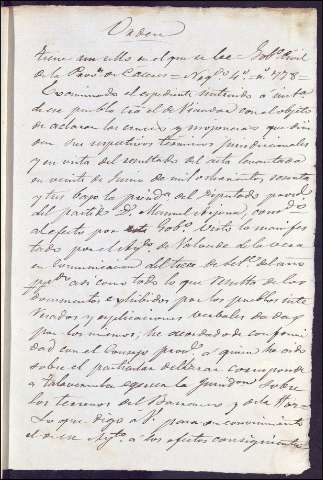 Orden
Tiene un sello en el que se lee = Gobº Civil
de la Provª de Cáceres = Negº 4º = nº 778 =
Examinado el expediente instruido á instª
de ese pueblo con el de Viandar con el objeto
de aclarar los cruces y mojoneras que divi
den sus respectivos terminos jurisdiccionales
y en vista del resultado del acta levantada
en veinte de Junio de mil ochocientos sesenta
y tres bajo la presidª del Diputado provˡ
del partido Dⁿ Manuel Arjona, comdº
al efecto por este Gobº Visto lo manifes
tado por el Aytº de Valverde de la vera
en comunicacion del trece de Febº del año
pasdº asi como todo lo que resulta de los
documentos exhibidos por los pueblos inte
resados y esplicaciones verbales dadas
por los mismos; he acordado de conformi
dad con el Consejo provˡ á quien he oido
sobre el particular declarar corresponde
a Talaveruela egerza la jurisdon sobre
los terrenos del Barranco y de la
Lo que digo á V. para su conocimiento
el de ese Aytº á los efectos consiguientes